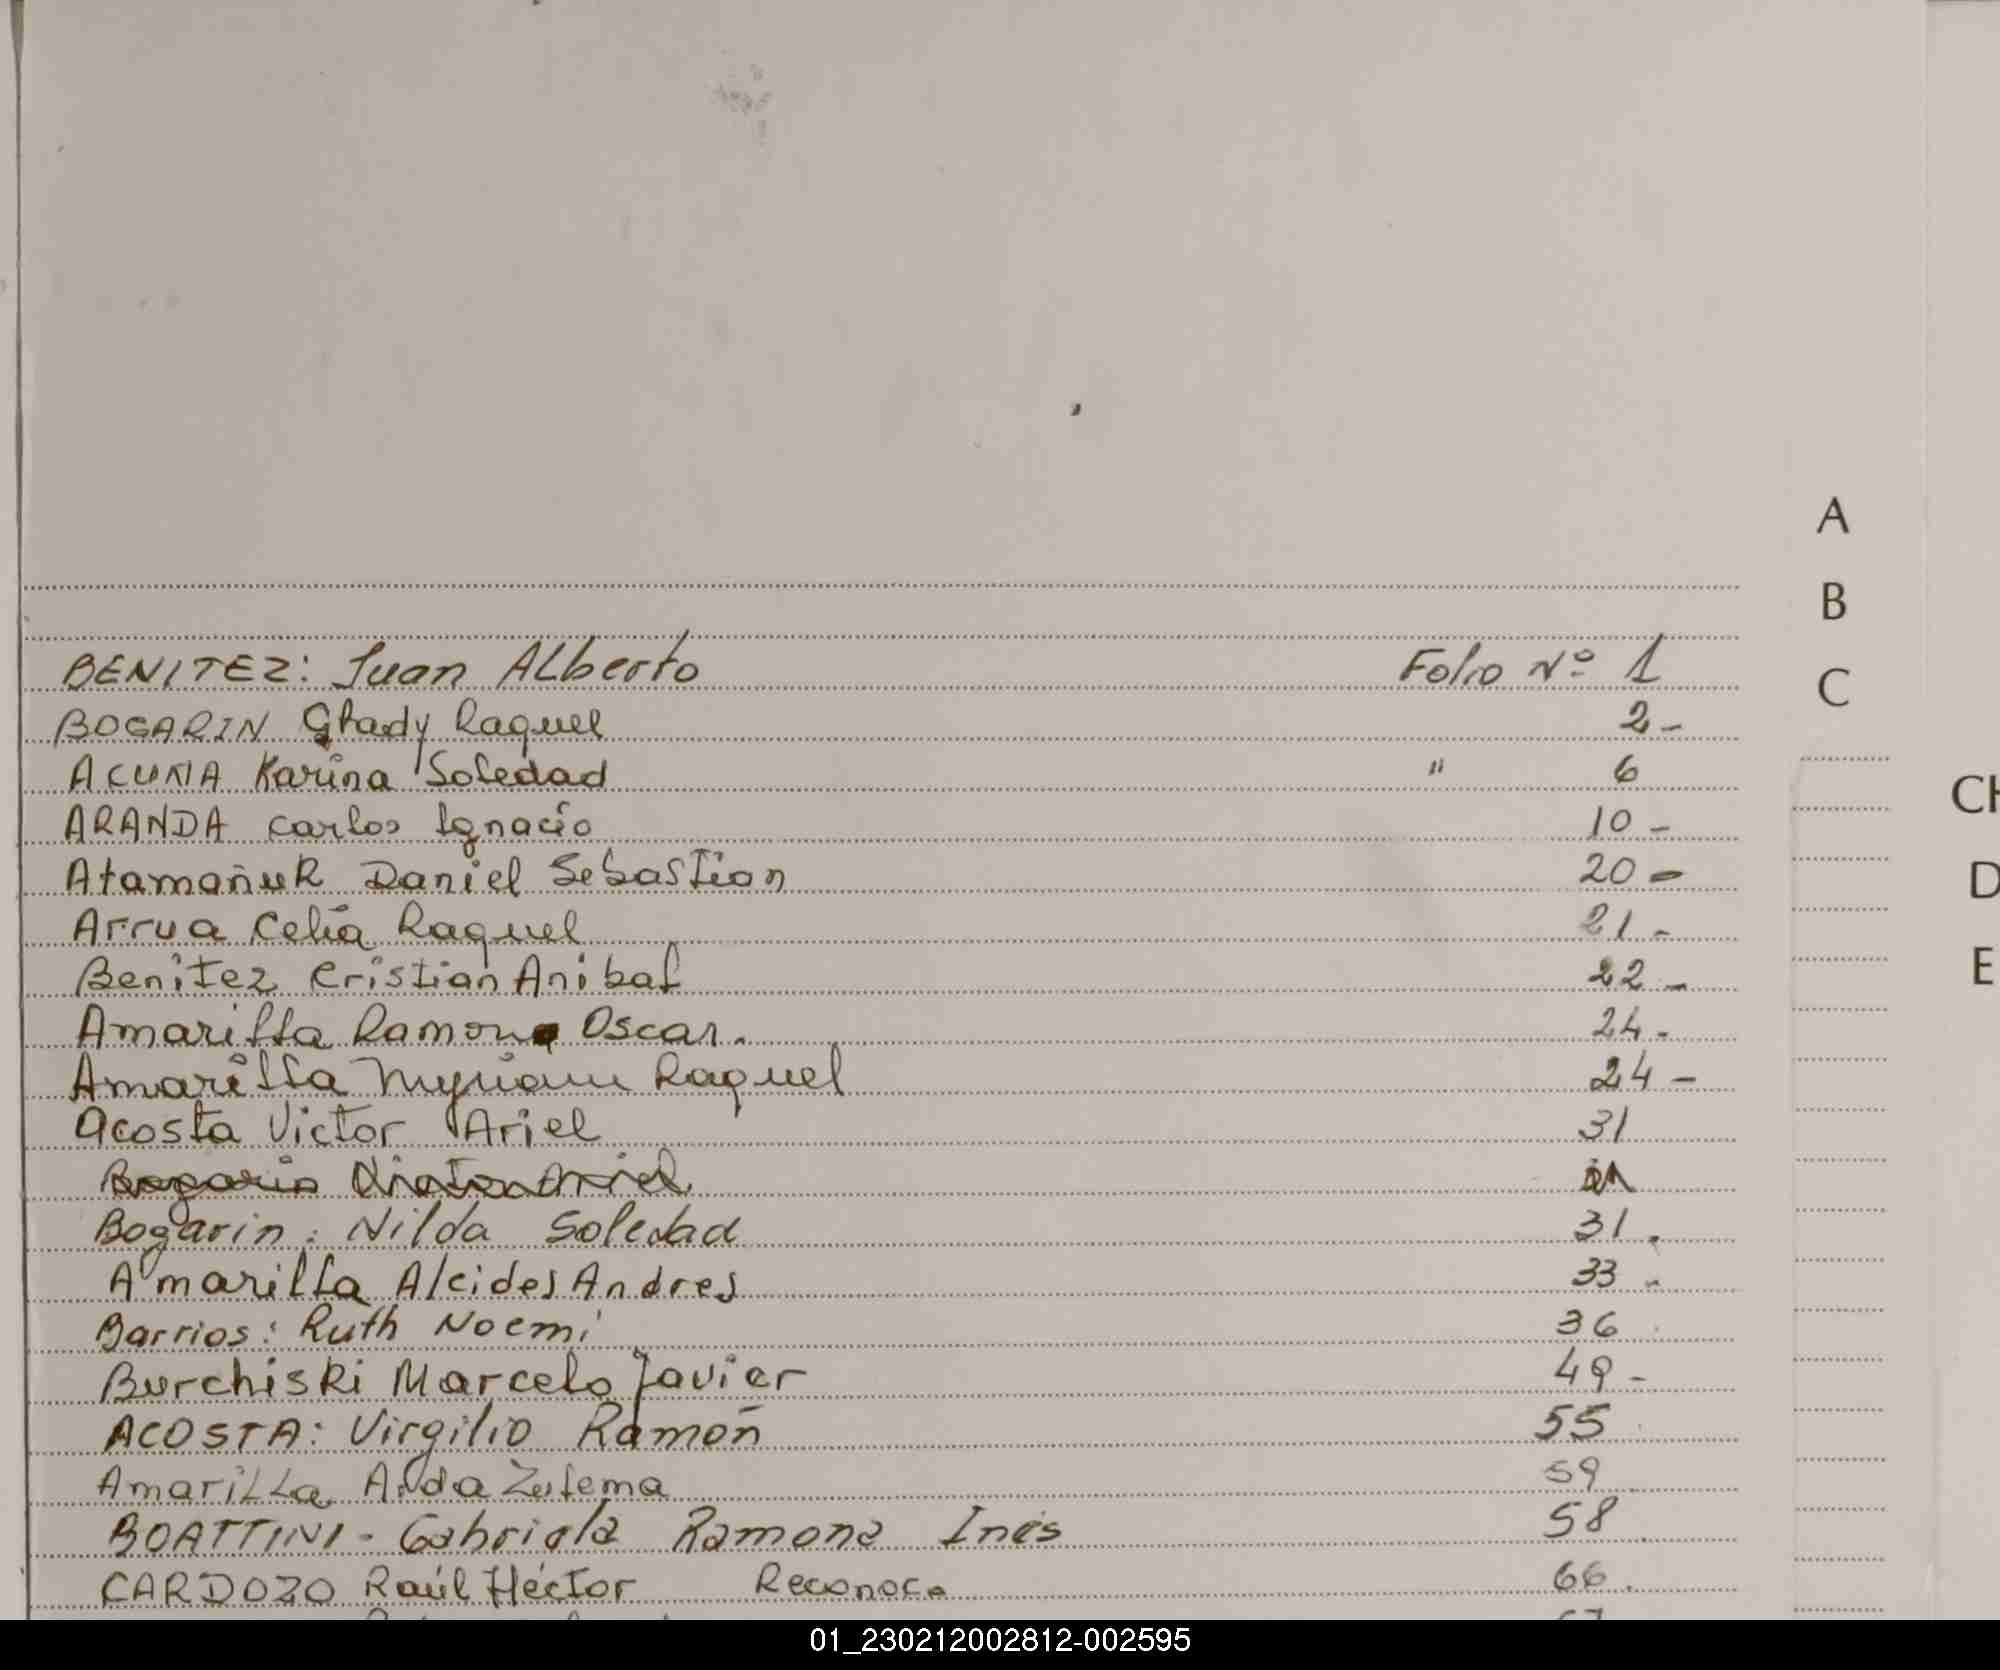 A
B
C
CH
D
E
BENITEZ: Juan ALberto Folio Nº 1
BOGARIN Glady Raquel 2-
ACUÑA Karina Soledad " 6
ARANDA Carlos Ignacio 10-
Atamañuk Daniel Sebastian 20-
Arrua Celia Raquel 21-
Benitez Cristian Anibal 22-
Amarilla Ramon Oscar. 24-
Amarilla Myriam Raquel 24-
Acosta Victor Ariel 31
Bogarin: Nilda Soledad 31.
Amarilla Alcides Andres 33-
Barrios: Ruth Noemi 36
Burchiski Marcelo Javier 49-
ACOSTA: Virgilio Ramón 55
Amarilla Zulema 59
BOATTINI - Gabriela Ramona Inés 58
CARDOZO Raúl Héctor Reconoc. 66.
01_230212002812-002595